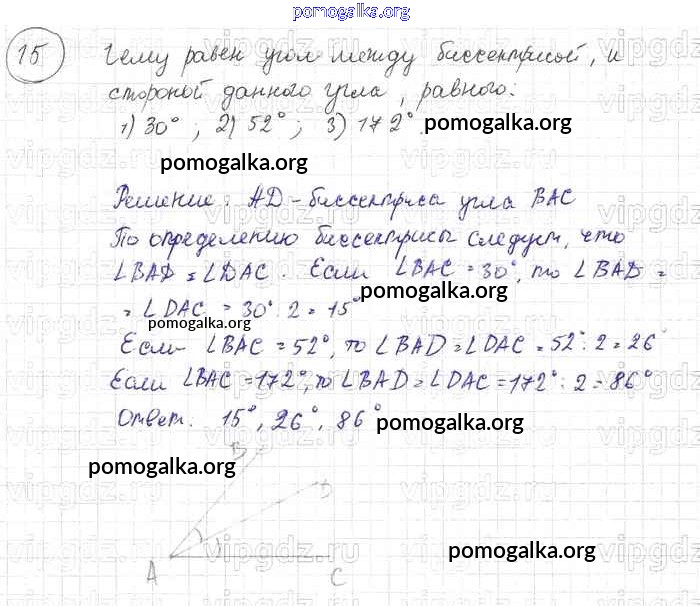 pomogalka.org
15 Чему равен угол между биссектрисой, и
стороной данного угла, равного:
1) 30°; 2) 52°; 3) 172° pomogalka.org
pomogalka.org
Решение: AD - биссектриса угла BAC
По определению биссектрисы следует, что
∠BAD = ∠DAC. Если ∠BAC = 30°, то ∠BAD =
pomogalka.org
= ∠DAC = 30° : 2 = 15°
pomogalka.org
Если ∠BAC = 52°, то ∠BAD = ∠DAC = 52° : 2 = 26°
Если ∠BAC = 172°, то ∠BAD = ∠DAC = 172° : 2 = 86°
Ответ. 15°, 26°, 86°
pomogalka.org
B
pomogalka.org
D
pomogalka.org
A
C
vipgdz.ru